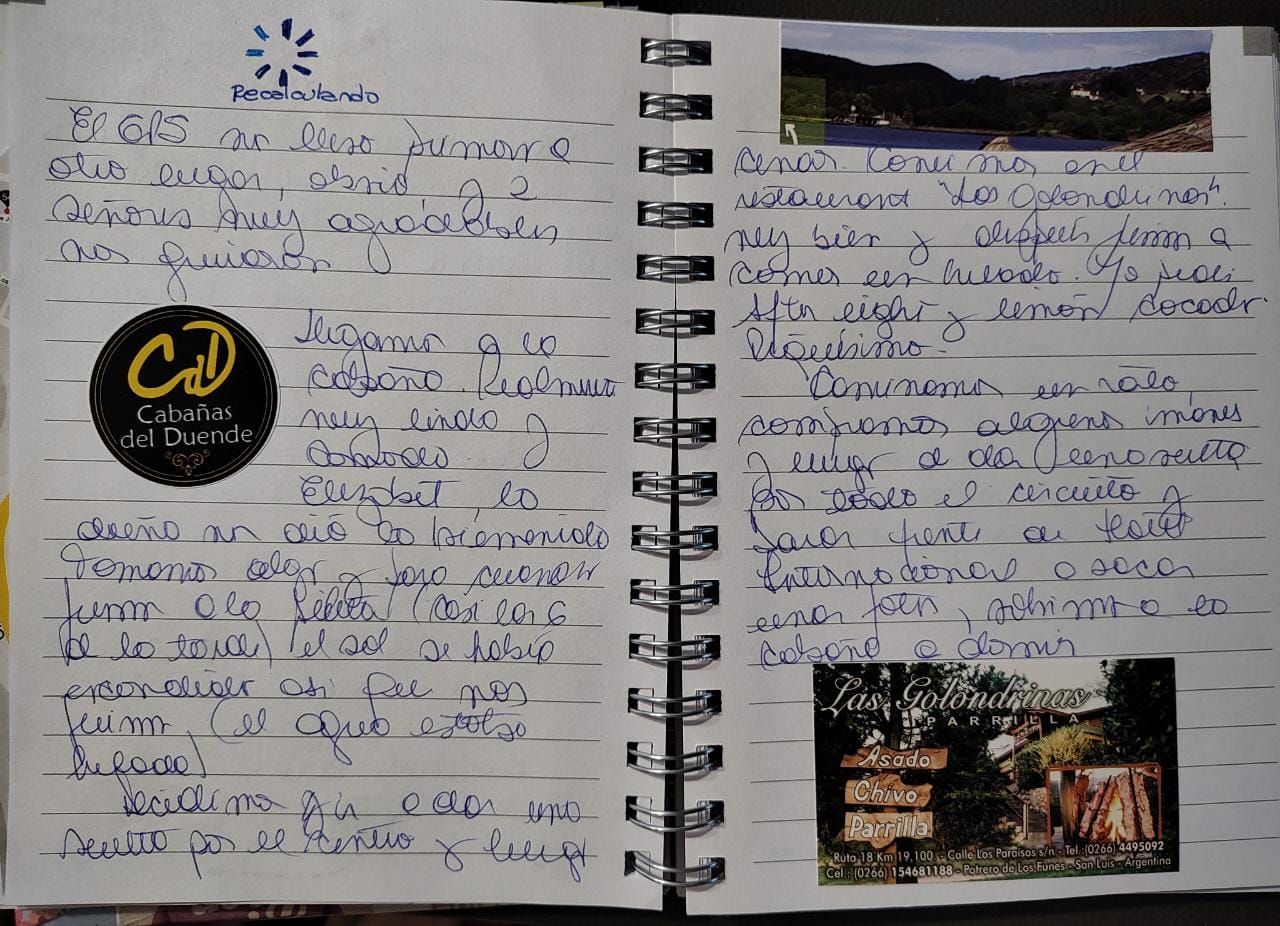 Recalculando
El GPS nos llevo fuimos a
otro lugar, obvio y 2
señores muy agradables
nos guiaron
Llegamos a la
cabaña. Realmente
muy linda y
comoda.
CdD
Cabañas
del Duende
Elizabet, la
dueña nos dió la bienvenida
Tomamos algo y para cuando
fuimos a la pileta (casi las 6
de la tarde) el sol se había
escondido asi que nos
fuimos. (el agua estaba
helada)
Decidimos ir a dar una
vuelta por el centro y luego
cenar. Comimos en el
restaurant "Las Golondrinas".
muy bien y después fuimos a
comer un helado. Yo pedi
After eight y limón
Riquísimo.
Caminamos un rato,
compramos algunos imanes
y luego a dar una vuelta
por todo el circuito y
parar frente al Hotel
Internacional a sacar
unas fotos, subimos a la
cabaña a dormir
Las Golondrinas
PARRILLA
Asado
Chivo
Parrilla
Ruta 18 Km 19,100 - Calle Los Paraisos s/n - Tel.:(0266) 4495092
Cel.: (0266) 154681188 - Potrero de Los Funes - San Luis - Argentina